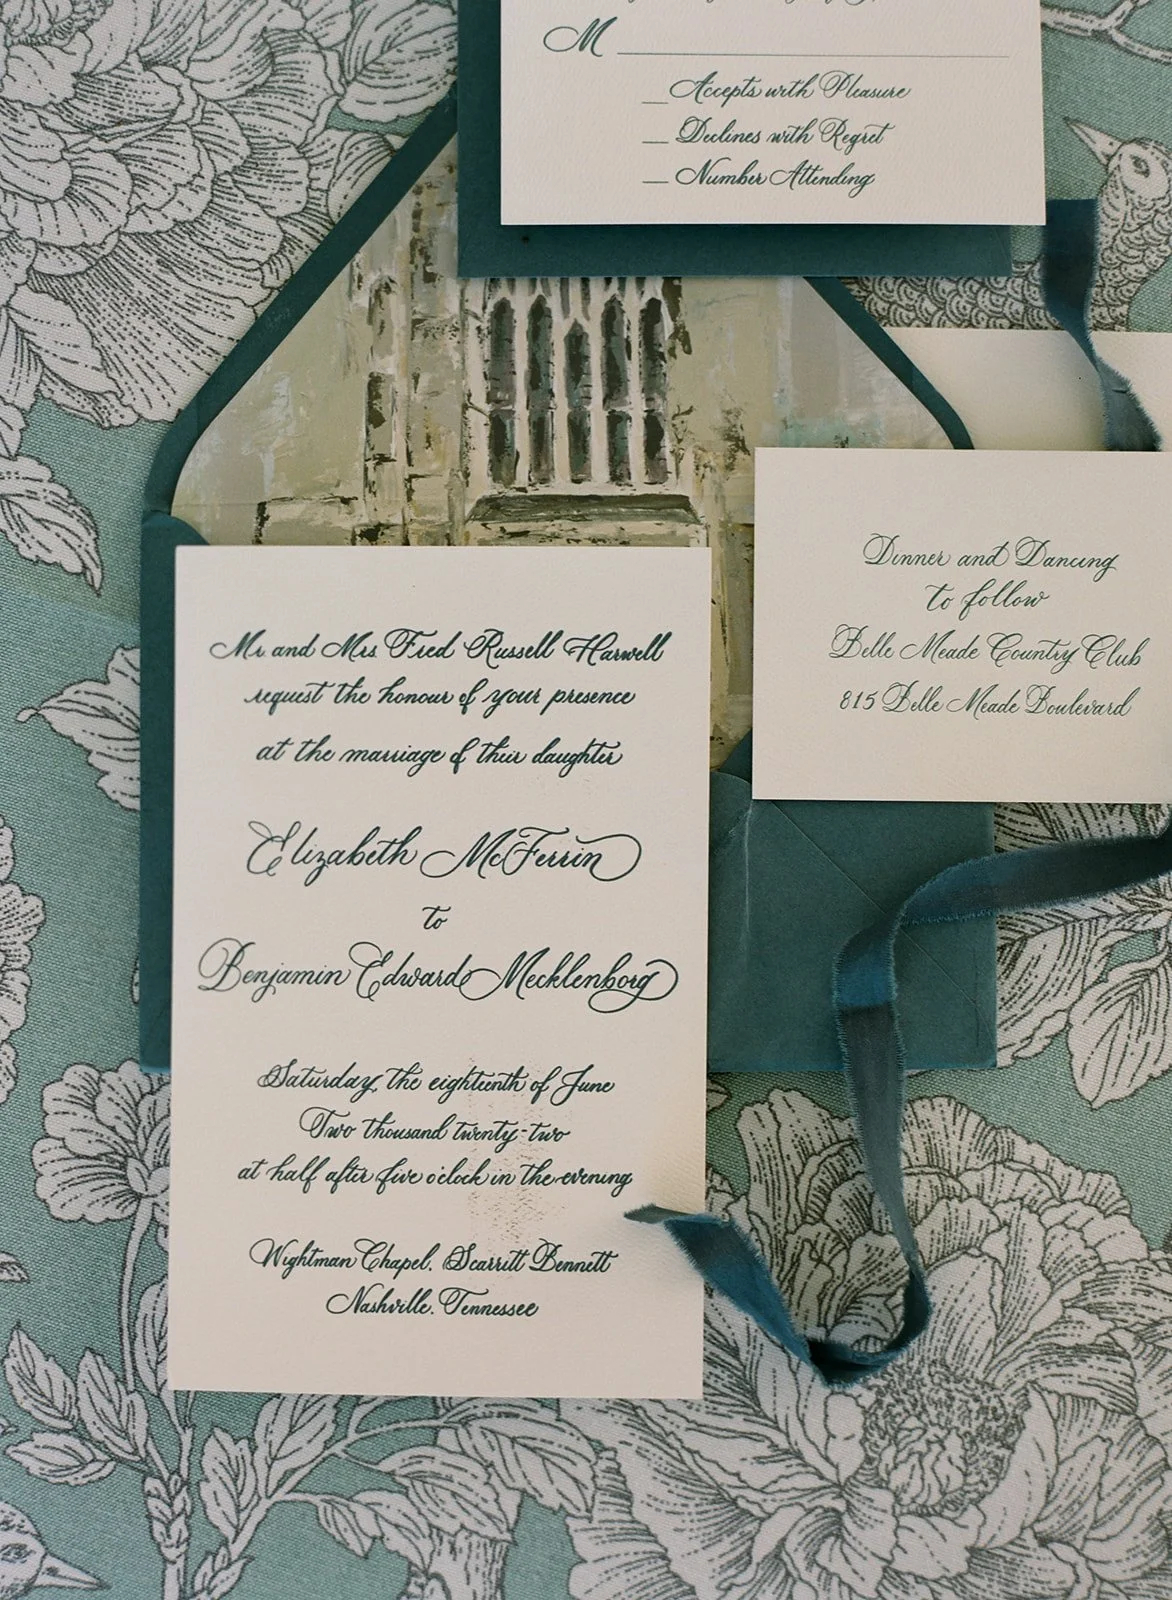 M
Accepts with Pleasure
Declines with Regret
Number Attending
Dinner and Dancing
to follow
Belle Meade Country Club
815 Belle Meade Boulevard
Mr and Mrs Fred Russell Harwell
request the honour of your presence
at the marriage of their daughter
Elizabeth McFerrin
to
Benjamin Edward Mecklenborg
Saturday, the eighteenth of June
Two thousand twenty-two
at half after five o'clock in the evening
Wightman Chapel, Scarritt Bennett
Nashville, Tennessee